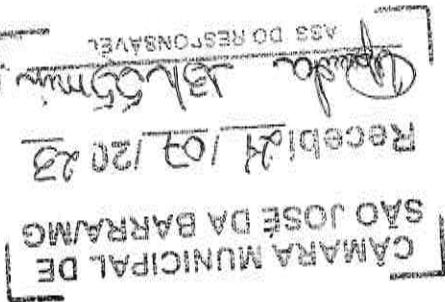 CÂMARA MUNICIPAL DE
SÃO JOSÉ DA BARRA/MG
Recebi / 07 / 20 23
13h55min
ASS DO RESPONSÁVEL